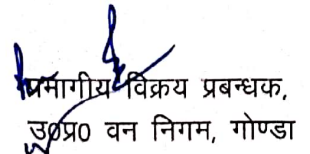 प्रभागीय विक्रय प्रबन्धक,
उ०प्र० वन निगम, गोण्डा